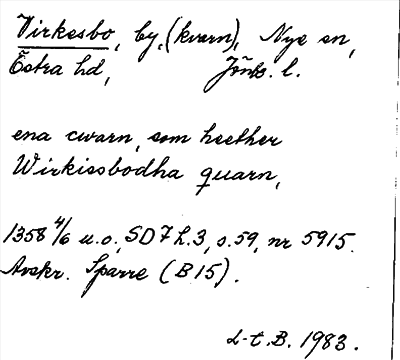 Virkesbo, by, (kvarn), Nye sn,
Östra hd, Jönk. l.
ena cwarn, som heether
Wirkissbodha quarn,
1358 4/6 u.o., SD 7 h.3, s.59, nr 5915.
Avskr. Sparre (B 15).
L-t. B. 1983.